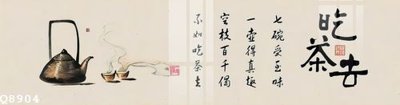 吃茶去
七碗受至味
一壶得真趣
空枝百千偈
不如吃茶去
Q8904